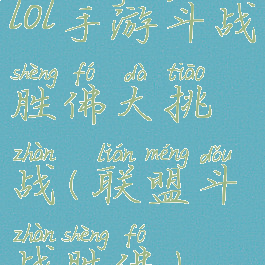 lol手游斗战
shèng fó dà tiāo
胜佛大挑
zhàn lián méng dǒu
战(联盟斗
zhàn shèng fó
战胜佛)